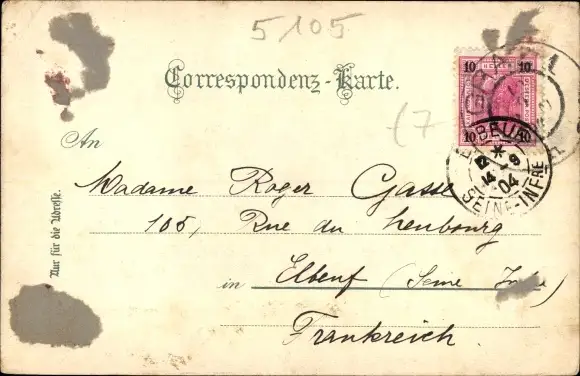 5105
Correspondenz-Karte.
(7
An
Madame Roger Gasse
105, Rue du Neubourg
in Elbeuf (Seine Infre)
Frankreich.
Nur für die Adresse.
10 10
10 10
ELBEUF
14 -9
04
SEINE-INFRE